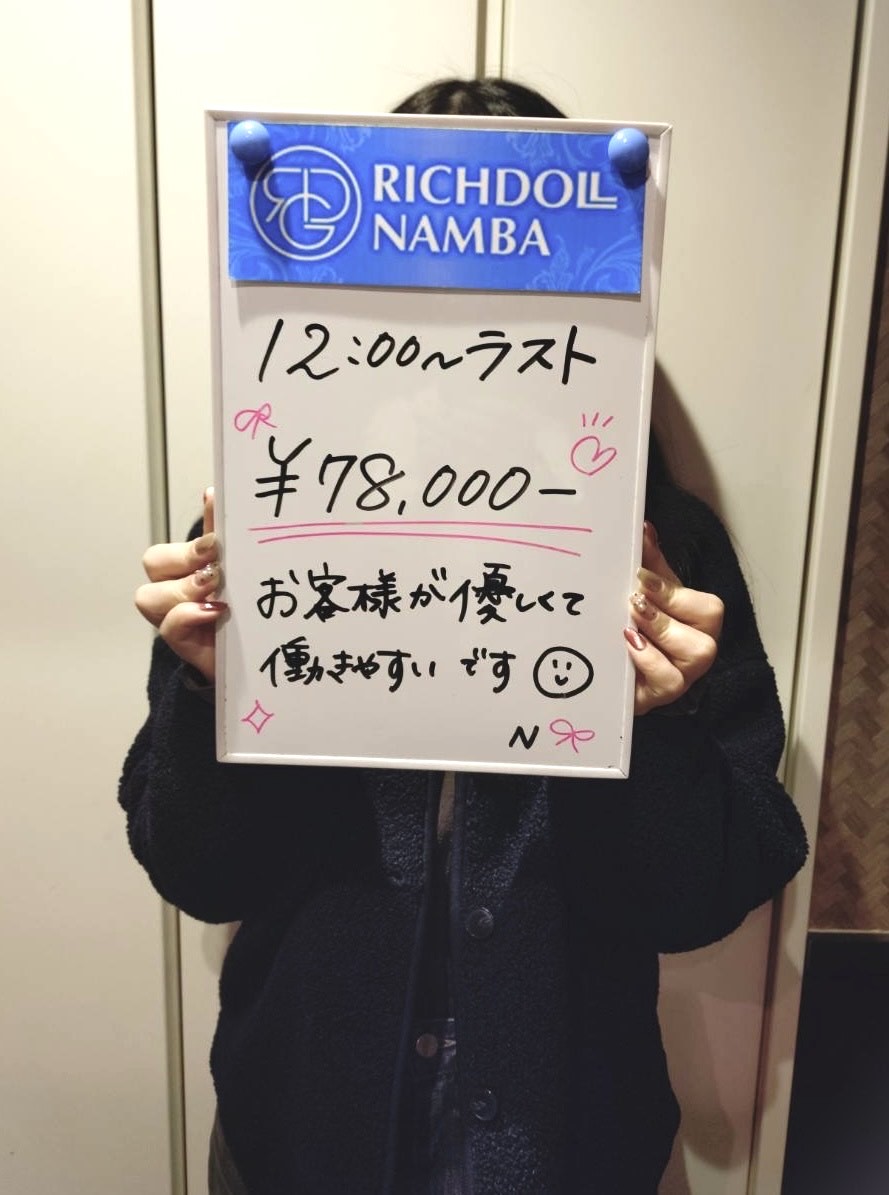 RDG
RICHDOLL
NAMBA
12:00~ラスト
¥78,000-
お客様が優しくて
働かきやすいです
N